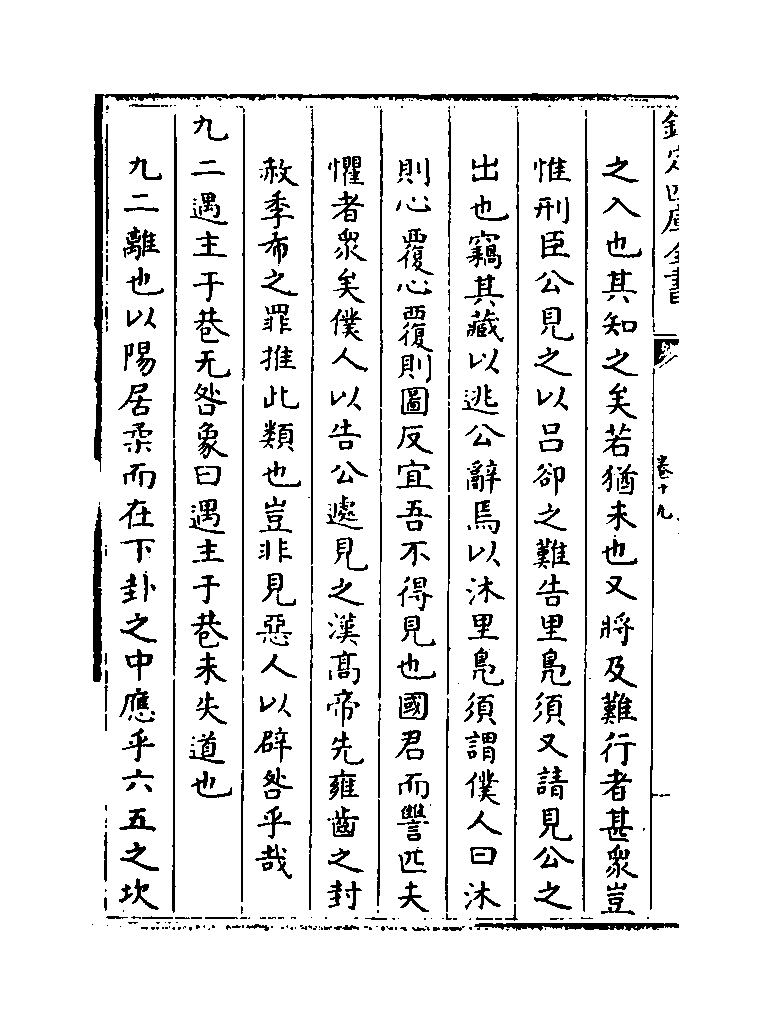 欽定四庫全書
卷十九
之入也其知之矣若猶未也又將及難行者甚衆豈
惟刑臣公見之以吕郤之難告里鳬須又請見公之
出也竊其藏以逃公辭焉以沐里鳬須謂僕人曰沐
則心覆心覆則圖反宜吾不得見也國君而讐匹夫
懼者衆矣僕人以告公遽見之漢髙帝先雍齒之封
赦季布之罪推此類也豈非見惡人以辟咎乎哉
九二遇主于巷无咎象曰遇主于巷未失道也
九二離也以陽居柔而在下卦之中應乎六五之坎